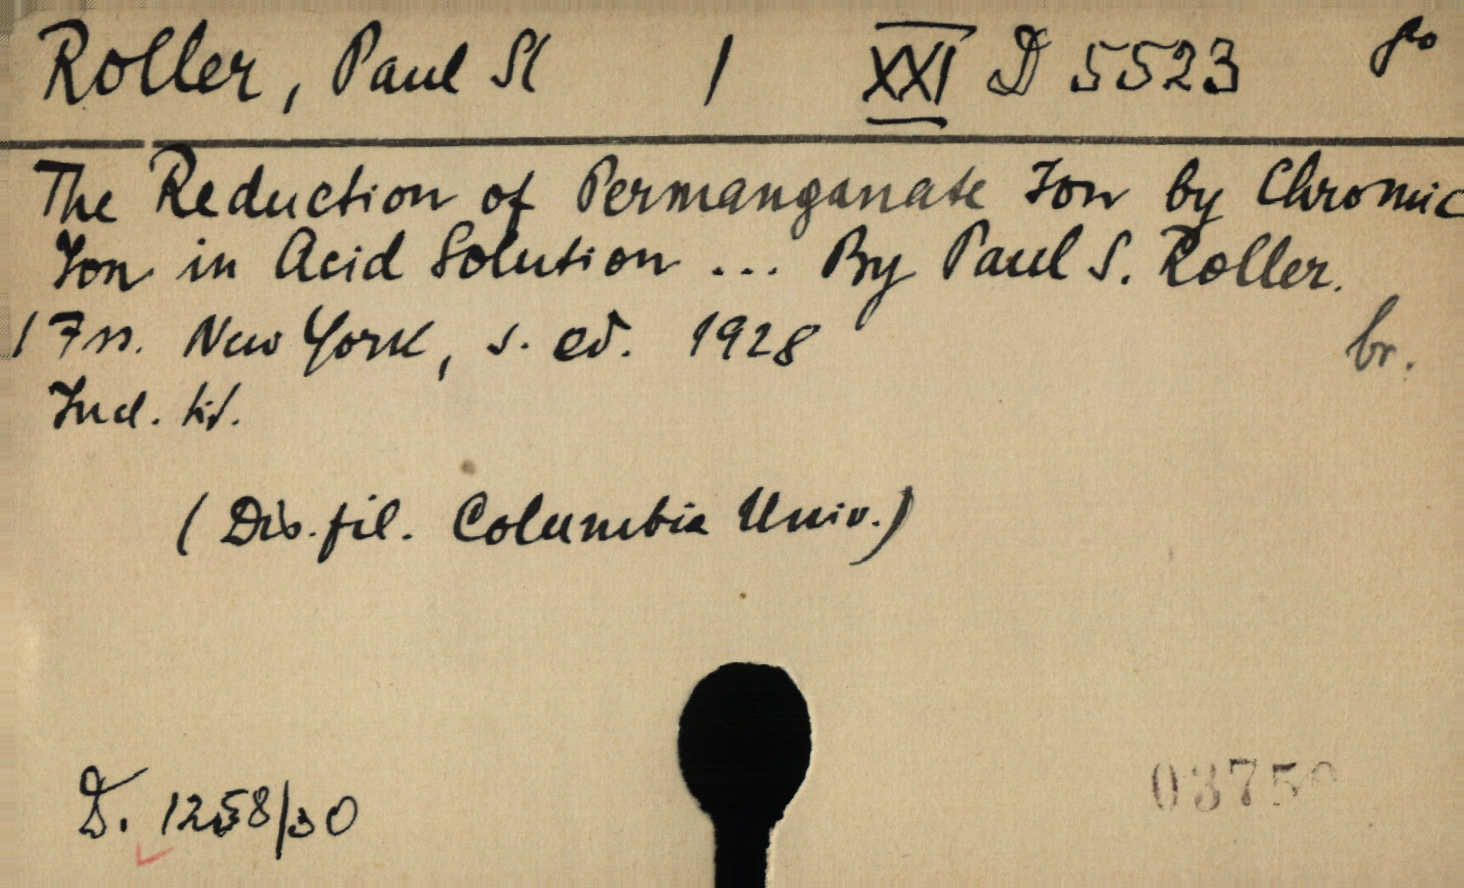 Roller, Paul S[ 1 XXI D 5523 8o
The Reduction of Permanganate Ion by Chromic
Ion in Acid Solution ... By Paul S. Roller.
17 ss. New York, s. ed. 1928 br.
Incl. tit.
(Dis. fil. Columbia Univ.)
D. 1258/30
0375